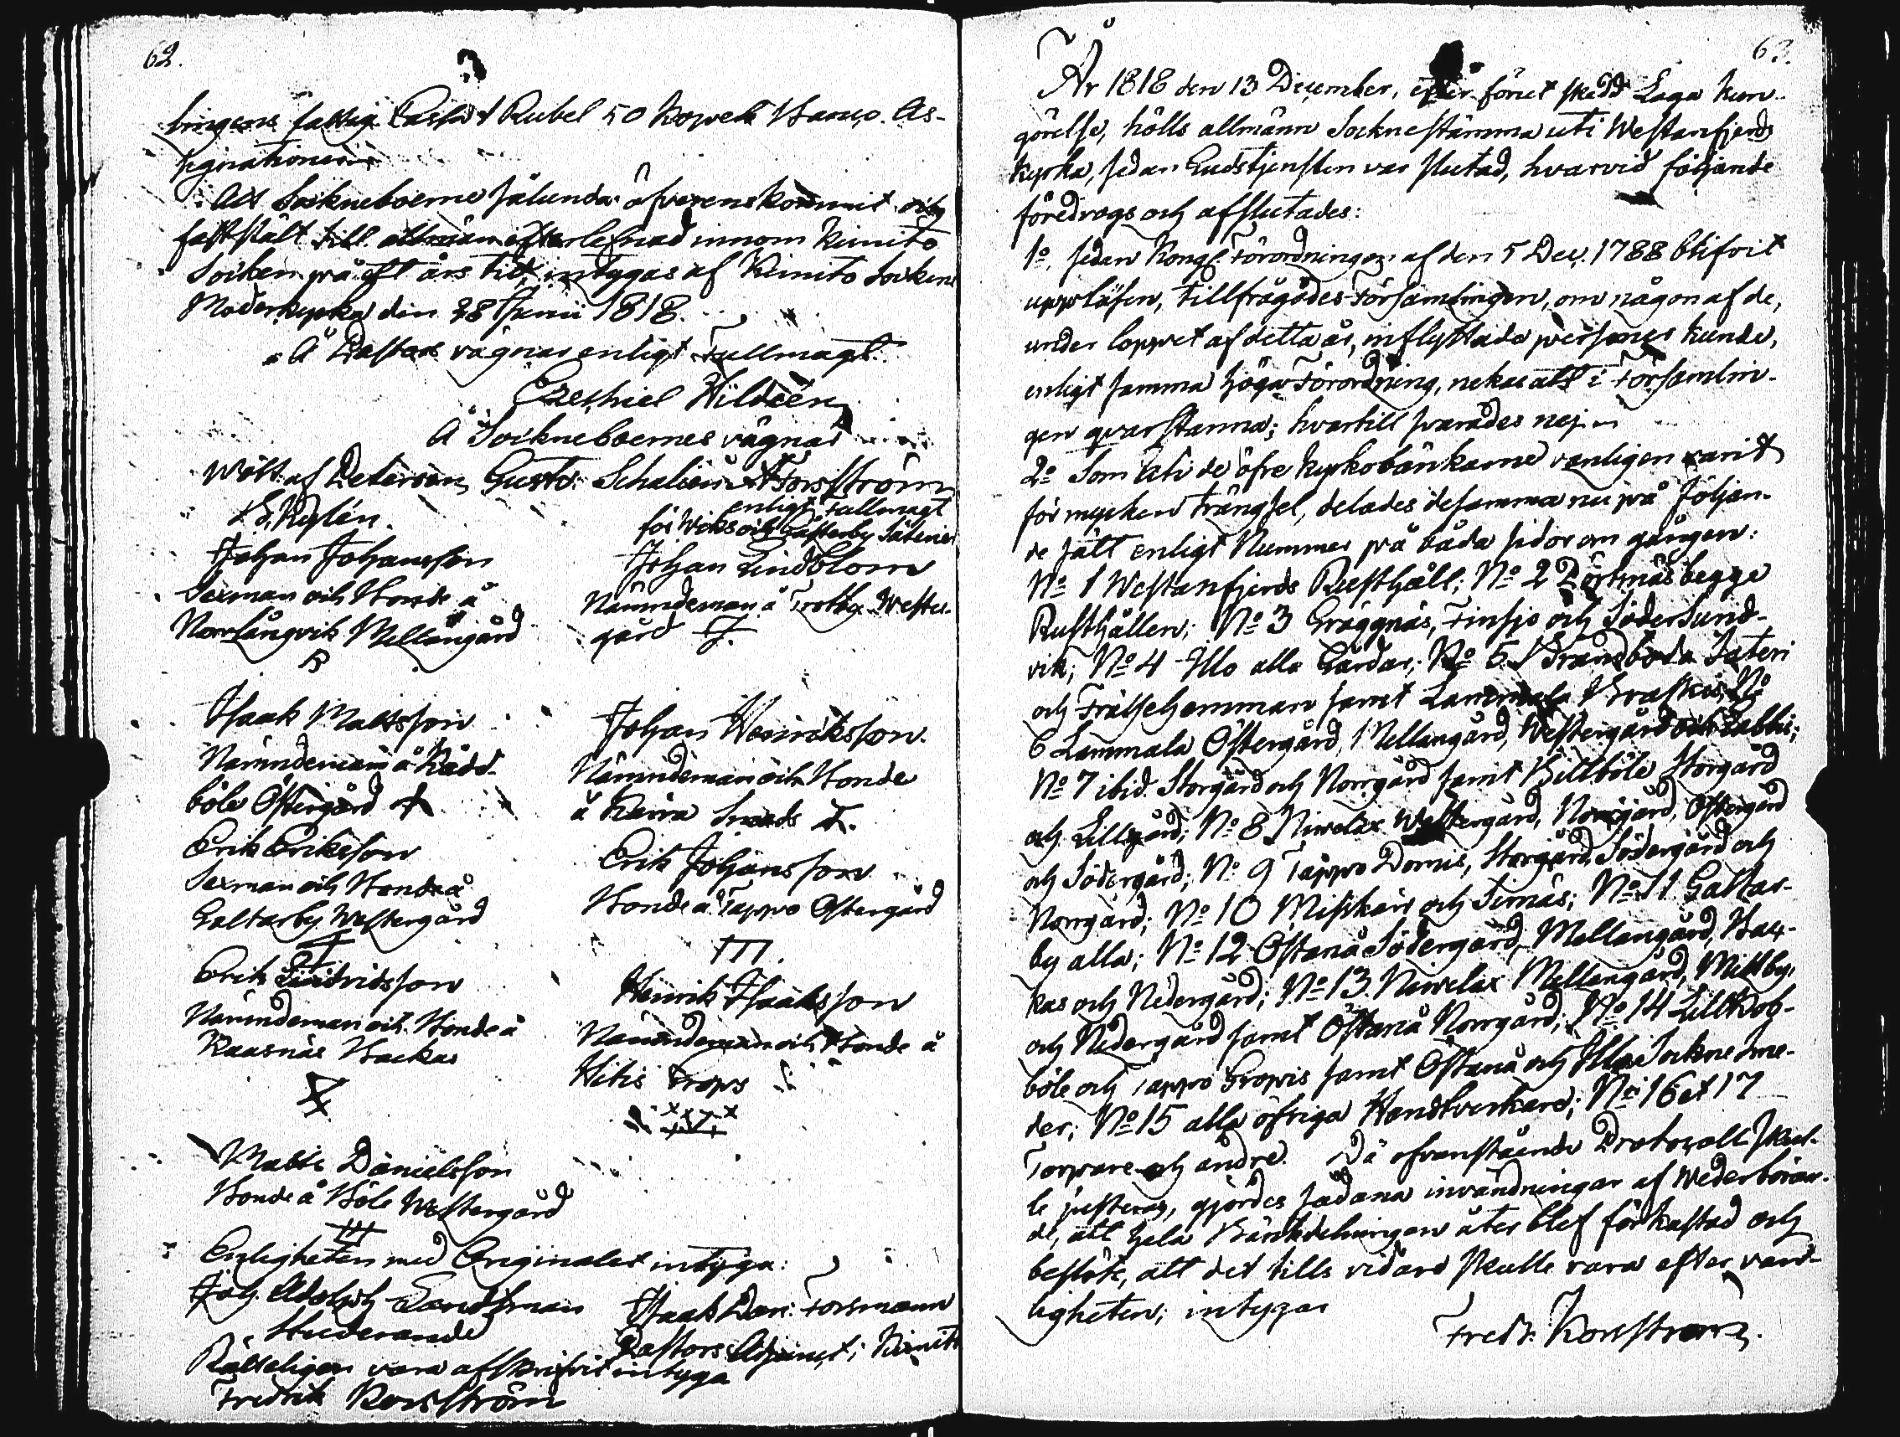 62.
bingens fattig Cassa 1 Rubel 50 Kopek Banco As-
signationer.
Att Sockneboerne sålunda öfverenskommit och
fastställt till allmän efterlefnad innom Kimito
Socken på ett års tid, intygas af Kimito Sockens
Moderkyrka den 28 Junii 1818.
Å Pastors vägnar enligt Fullmagt.
Ezechiel Hildeen
Å Sockneboernes vägnar
Wolt. af Petersen Gustv. Schalien A Forsström
enligt Fullmagt
E. Rylén. för Wiks och Gästerby Säterier
Johan Johansson Johan Lindblom
Sexman och Bonde å Nämndeman å Trotby Wester-
Norrlångvik Mellangård gård
Isaak Mattsson Johan Henriksson.
Nämndeman å Rådd- Nämndeman och Bonde
böle Östergård å Kärra Sneds
Erik Eriksson Erik Johansson
Sexman och Bonde å Bonde å Tappo Östergård
Galtarby Westergård
III.
Erik Sigfridsson Henrik Isaaksson
Nämndeman och Bonde å Nämndeman och Bonde å
Kaasnäs Backas Hitis Krops
Matts Danielsson
Bonde å Böle Westergård
III
Enligheten med Originalet intyga:
Joh. Adolph Sandman Isaak Dan: Forsmann
Studerande Pastors Adjunct i Kimito
Rätteligen vara afskrifvit intyga
Fredrik Korsström
63.
År 1818 den 13 December, efter förut skedd Laga kun-
görelse, hölls allmänn Socknestämma uti Westanfjerds
kyrka, sedan Gudstjensten var slutad, hvarvid följande
föredrogs och afslutades:
1o. sedan Kongl. Förordningen af den 5 Dec. 1788 blifvit
uppläsen, tillfrågades Församlingen, om någon af de,
under loppet af detta år, inflyttade personer kunde,
enligt samma höga Förordning, nekas att i Församlin-
gen qvarstanna; hvartill svarades nej.
2o Som uti de öfre kyrkobänkarne vanligen varit
för mycken trängsel, delades desamma nu på följan-
de sätt enligt Nummer på båda sidor om gången:
No 1 Westanfjerds Rusthåll; No 2 Pörtnäs begge
Rusthållen; No 3 Gräggnäs, Finsjö och Södersund-
vik; No 4 Illo alla Gårdar; No 5 Bransboda Säteri
och Frälsehemman samt Lammala Braskas, No
6 Lammala Östergård, Mellangård, Westergård och Labbis;
No 7 ibid. Storgård och Norrgård samt Billböle Storgård
och Lillgård; No 8 Nivelax Westergård, Norrgård, Östergård
och Södergård; No 9 Tappo Domis, Storgård, Södergård och
Norrgård; No 10 Misskär och Sirnäs; No 11 Galtar-
by alla; No 12 Östanå Södergård, Mellangård, Bac-
kas och Nedergård; No 13 Nivelax Mellangård, Mittby,
och Nedergård samt Östanå Norrgård; No 14 Lillkob-
böle och Tappo Gropis samt Östanå och Illo Socknesme-
der; No 15 alla öfriga Handtverkare; No 16 et 17
Torpare och andre. Då ofvanstående Protocoll skul-
le justeras, gjordes sådana invändningar af Wederböran-
de, att hela Bänkdelningen åter blef förkastad och
beslöts, att det tills vidare skulle vara efter van-
ligheten; intygar
Fredr. Korsström.